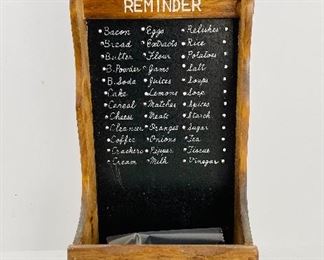 REMINDER
• Bacon • Eggs • Relishes •
• Bread • Extracts • Rice •
• Butter • Flour • Potatoes •
• B. Powder • Jams • Salt •
• B. Soda • Juices • Soups •
• Cake • Lemons • Soap •
• Cereal • Matches • Spices •
• Cheese • Meats • Starch •
• Cleanser • Oranges • Sugar •
• Coffee • Onions • Tea •
• Crackers • Pepper • Tissue •
• Cream • Milk • Vinegar •